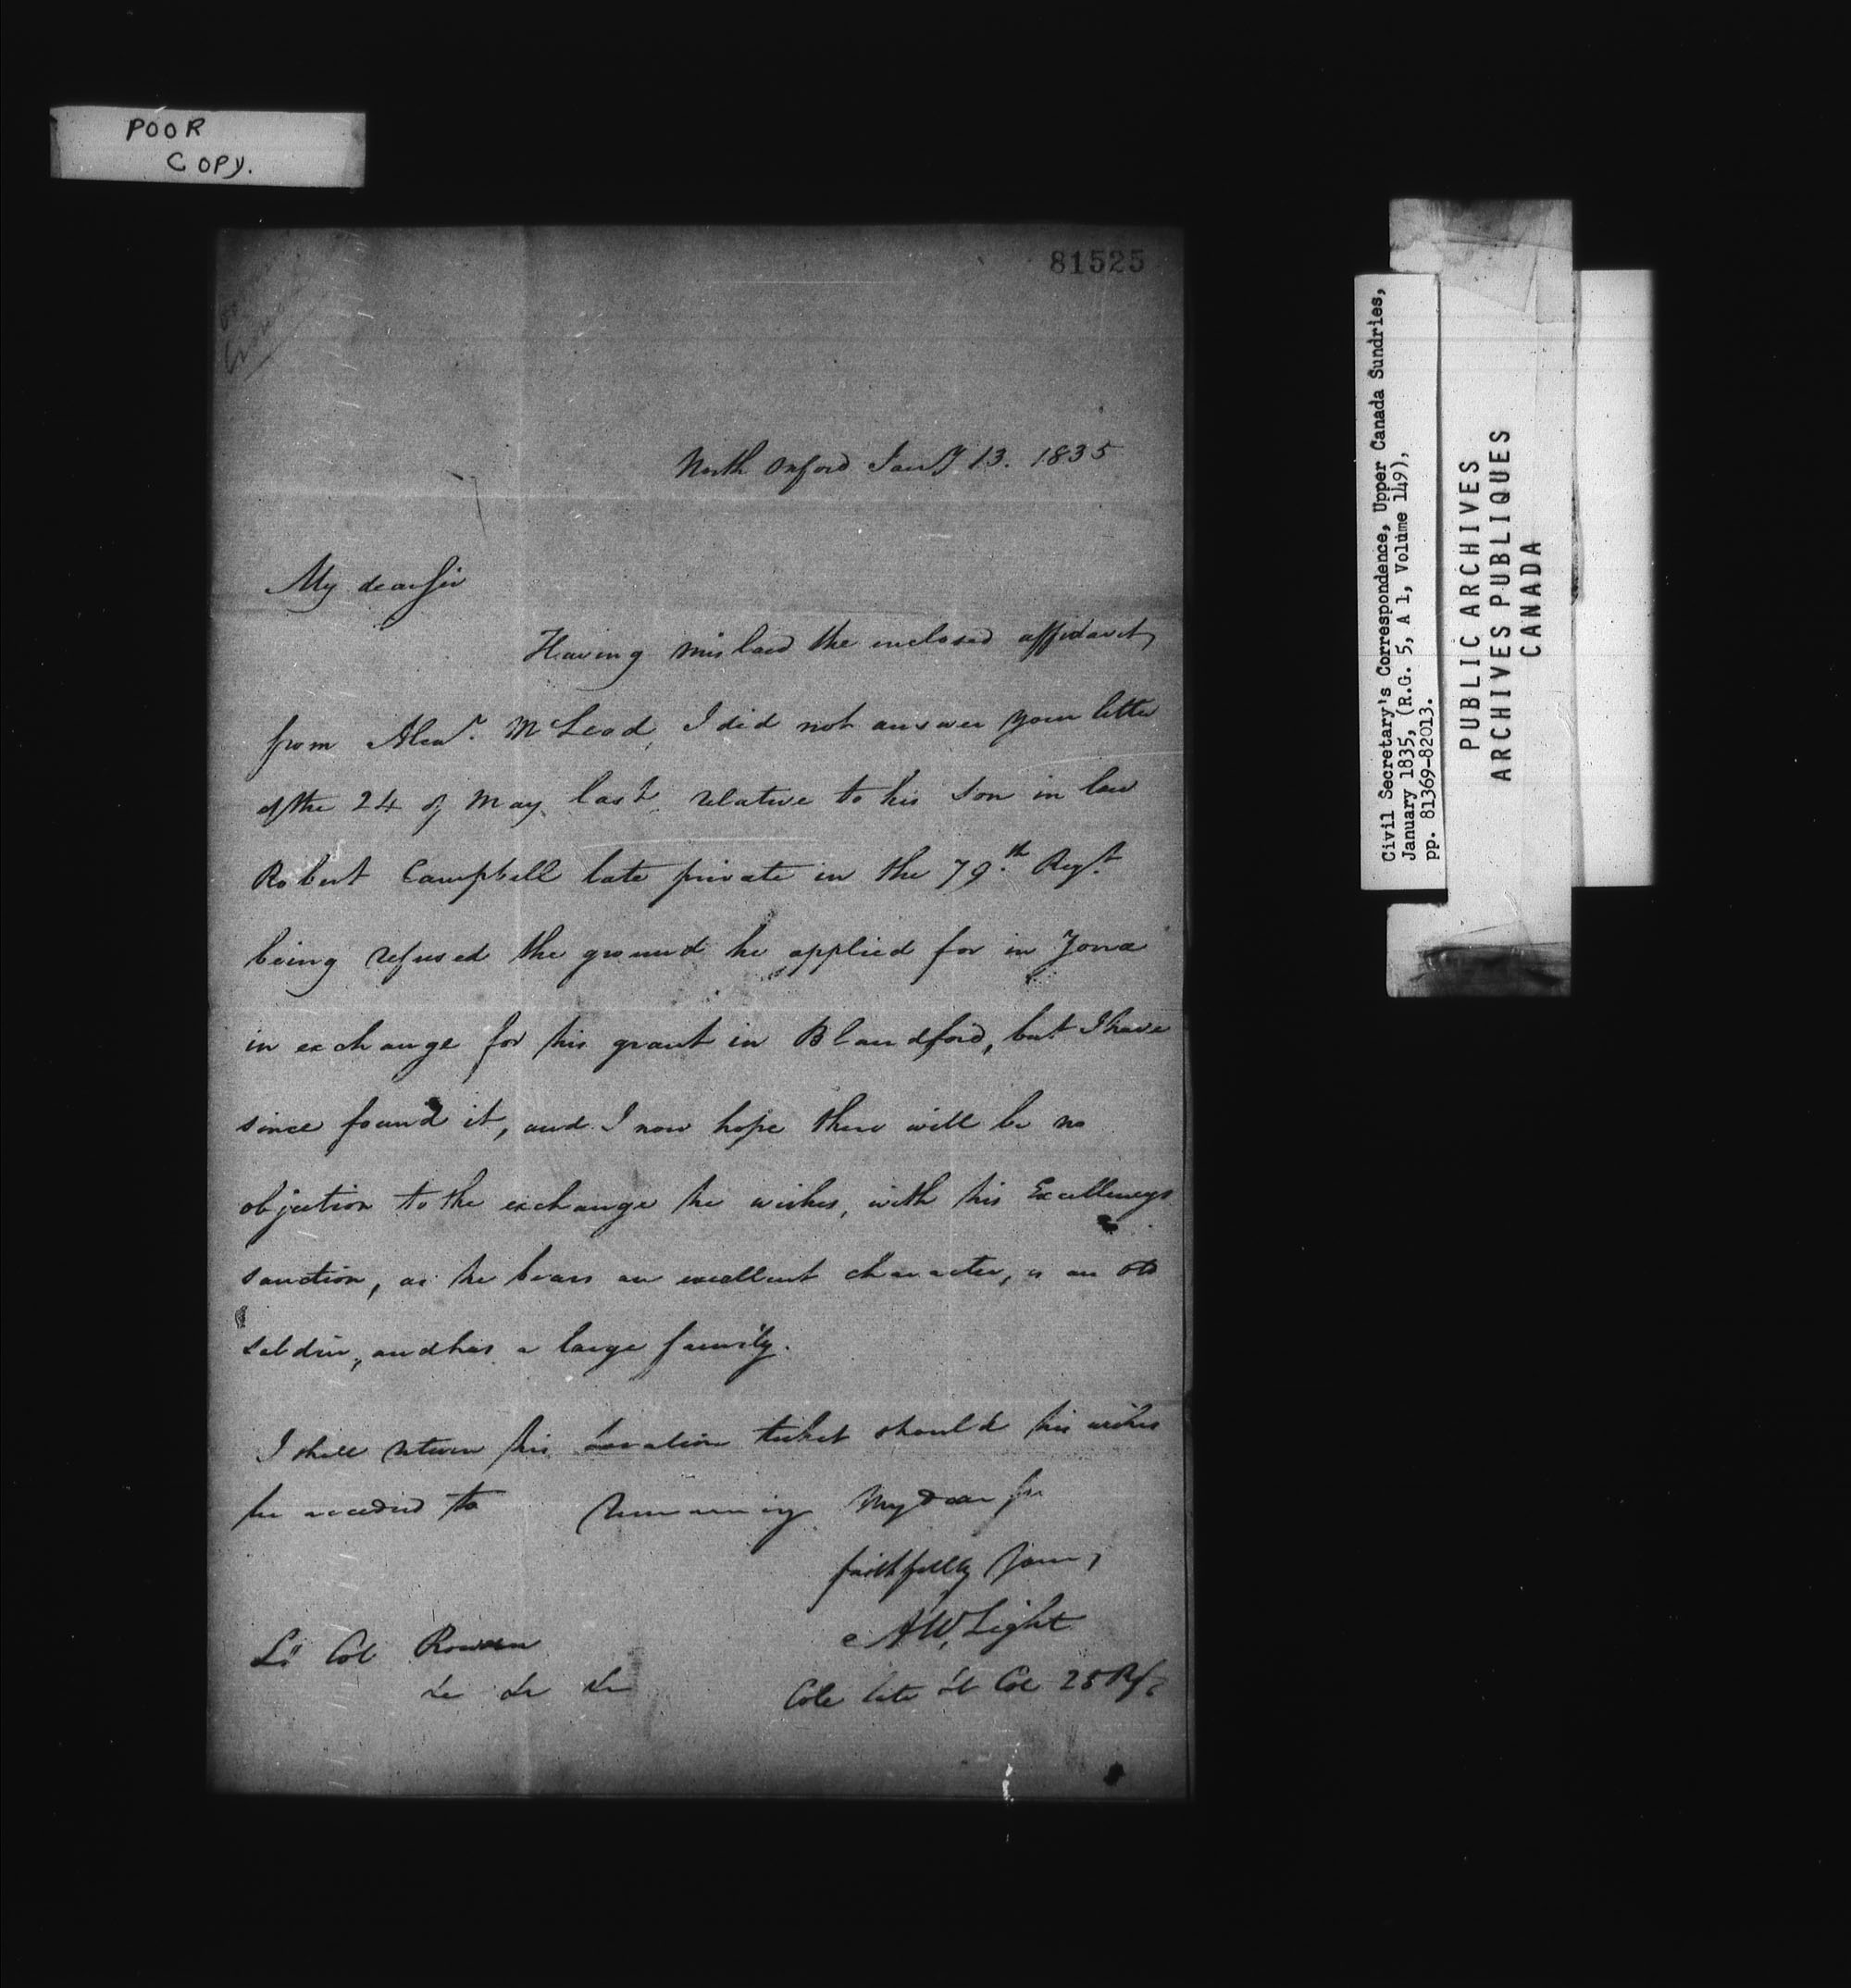 POOR
COPY.
81525
North Oxford Jany 13. 1835
My dear Sir
Having mislaid the inclosed affidavit,
from Alexr. McLeod, I did not answer your letter
of the 24 of May last relative to his son in law
Robert Campbell late private in the 79th Regt.
being refused the ground he applied for in Zorra
in exchange for his grant in Blandford, but I have
since found it, and I now hope there will be no
objection to the exchange he wishes, with his Excellencys
sanction, as he bears an excellent character, is an old
soldier, and has a large family.
I shall return his location ticket should his wishes
be acceded to remaining My dear Sir
faithfully yours,
AW Light
Lt Col Rowan
&c &c &c
Col late Lt Col 25 Rgt
Civil Secretary's Correspondence, Upper Canada Sundries,
January 1835, (R.G. 5, A 1, Volume 149),
pp. 81369-82013.
PUBLIC ARCHIVES
ARCHIVES PUBLIQUES
CANADA